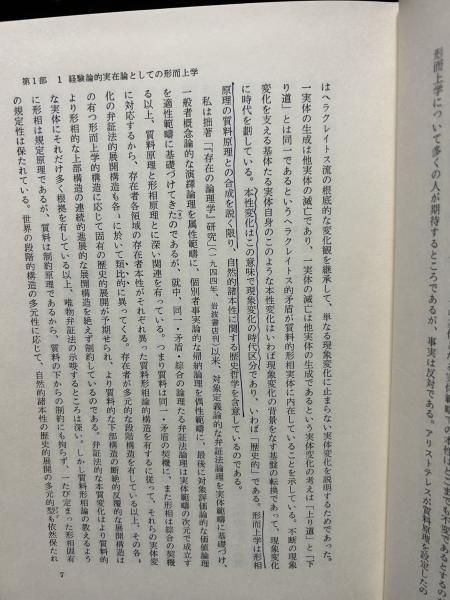 第1部　1　経験論的実在論としての形而上学
形而上学について多くの人が期待するところであるが、事実は反対である。アリストテレスが質料原理を設定したの
はヘラクレイトス流の根底的な変化観を継承して、単なる現象変化に止まらない実体変化を説明するためであった。
一実体の生成は他実体の滅亡であり、一実体の滅亡は他実体の生成であるという実体変化の考えは「上り道」と「下
り道」とは同一であるというヘラクレイトス的矛盾が質料的形相実体に内在していることを示している。不断の現象
変化を支える基体たる実体自身のこのような本性変化はいわば現象変化の背景をなす基盤の転換であって、現象変化
に時代を劃している。本性変化はこの意味で現象変化の時代区分であり、いわば「歴史的」である。形而上学は形相
原理の質料原理との合成を説く限り、自然的諸本性に関する歴史哲学を含意しているのである。
私は拙著『「存在の論理学」研究』(一九四四年、岩波書店刊)以来、対象定義論的な弁証法論理を実体範疇に、
一般者概念論的な演繹論理を属性範疇に、個別者事実論的な帰納論理を偶性範疇に、最後に対象評価論的な価値論理
を適性範疇に基礎づけてきたのであるが、就中、同一・矛盾・綜合の論理たる弁証法論理は実体範疇の次元で成立す
る以上、質料原理と形相原理とに深い関連を有っている。つまり質料は同一・矛盾の契機に、また形相は綜合の契機
に対応するから、存在者各領域の存在者本性がそれぞれ異った質料形相論的構造を有するに従って、それらの実体変
化の弁証法的展開構造も各〻に於いて類比的に異ってくる。存在者が多元的な段階構造を有している以上、その各〻
の有つ形而上学的構造に応じて固有の歴史的展開が予期せられ、より質料的な下部構造の断絶的反覆的な展開構造は
より形相的な上部構造の連続的進展的な展開構造を絶えず制約しているのである。弁証法的な本質変化はより質料的
な実体にそれだけ多く根拠を有している以上、唯物弁証法の示唆するところは深い。しかし質料形相論の教えるよう
に形相は規定原理であるが、質料は制約原理であるから、質料の下からの制約にも拘らず、一たび定まった形相固有
の規定性は保たれている。世界の段階的構造の多元性に応じて、自然的諸本性の歴史的展開の多元的型も依然保たれ
7